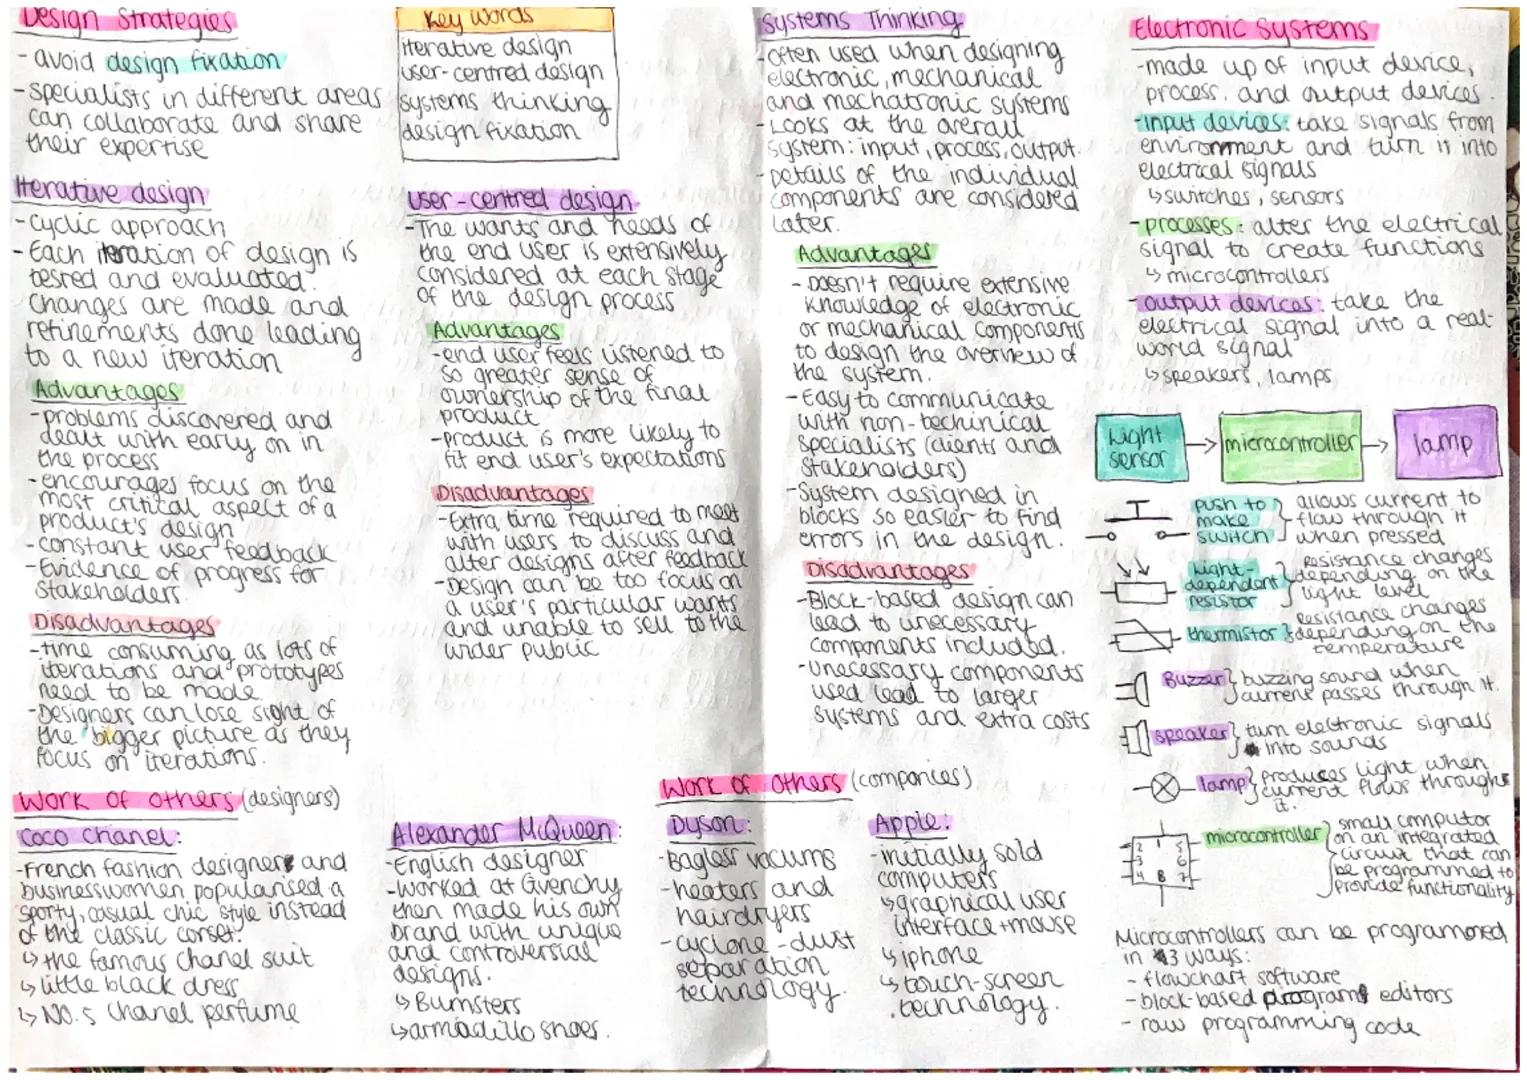 Design Strategies
- avoid design fixation
- specialists in different areas
can collaborate and share
their expertise
Key words
iterative design
user-centred design
systems thinking
design fixation
Iterative design
- cyclic approach
- Each iteration of design is
tested and evaluated.
Changes are made and
refinements done leading
to a new iteration
Advantages
- problems discovered and
dealt with early on in
the process
- encourages focus on the
most critical aspect of a
product's design
- constant user feedback
- Evidence of progress for
stakeholders.
Disadvantages
- time consuming as lots of
iterations and prototypes
need to be made
- Designers can lose sight of
the bigger picture as they
focus on iterations.
user-centred design
- The wants and needs of
the end user is extensively
considered at each stage
of the design process
Advantages
- end user feels listened to
so greater sense of
ownership of the final
product
- product is more likely to
fit end user's expectations
Disadvantages
- Extra time required to meet
with users to discuss and
alter designs after feedback
- Design can be too focus on
a user's particular wants
and unable to sell to the
wider public
Work of others (designers)
Coco Chanel:
- French fashion designer and
businesswomen popularised a
sporty, casual chic style instead
of the classic corset.
↳ the famous chanel suit
↳ little black dress
↳ NO.5 Chanel perfume
Alexander McQueen:
- English designer
- worked at Givenchy
then made his own
brand with unique
and controversial
designs.
↳ Bumsters
↳ armadillo shoes.
Work of others (companies)
Dyson:
- Bagless vacums
- heaters and
hairdryers
- cyclone-dust
separation
technology.
Apple:
- initially sold
computers
↳ graphical user
interface + mouse
↳ iphone
↳ touch-screen
technology.
Systems Thinking
- often used when designing
electronic, mechanical
and mechatronic systems
- Looks at the overall
system: input, process, output.
- Details of the individual
components are considered
later.
Advantages
- Doesn't require extensive
knowledge of electronic
or mechanical components
to design the overview of
the system.
- Easy to communicate
with non-techinical
specialists (clients and
stakeholders)
- System designed in
blocks so easier to find
errors in the design.
Disadvantages
- Block-based design can
lead to unecessary
components included.
- unecessary components
used lead to larger
systems and extra costs
Electronic Systems
- made up of input device,
process, and output devices.
- input devices: take signals from
environment and turn it into
electrical signals
↳ switches, sensors
- processes: alter the electrical
signal to create functions
↳ microcontrollers
- output devices: take the
electrical signal into a real-
world signal
↳ speakers, lamps
Light sensor → microcontroller → lamp
push to make switch } allows current to flow through it when pressed
Light-dependent resistor } resistance changes depending on the light level
thermistor } resistance changes depending on the temperature
Buzzer } buzzing sound when current passes through it.
speaker } turn electronic signals into sounds
lamp } produces light when current flows through it.
1 2 3 4 5 6 7 8
microcontroller } small computor on an integrated circuit that can be programmed to provide functionality
Microcontrollers can be programmed
in 3 ways:
- flowchart software
- block-based program editors
- raw programming code